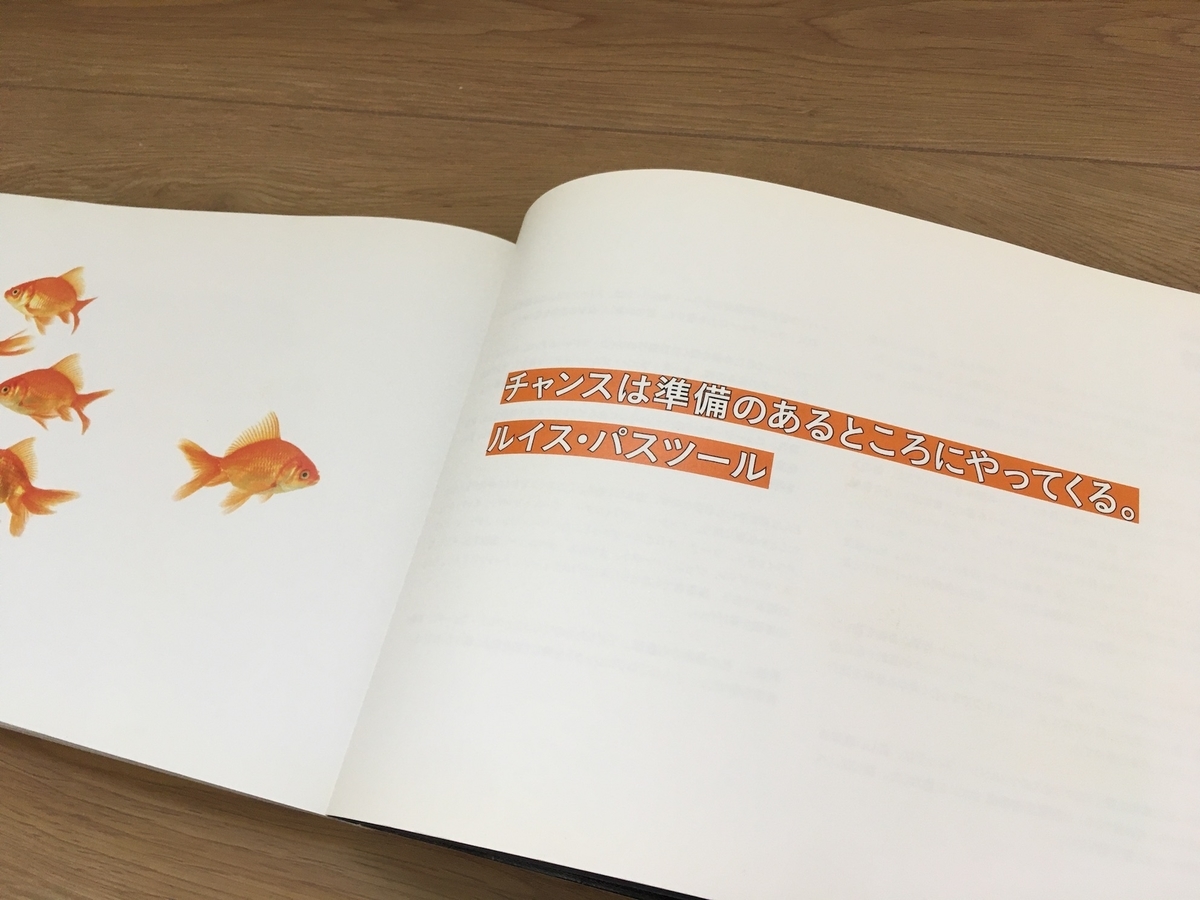 チャンスは準備のあるところにやってくる。
ルイス・パスツール